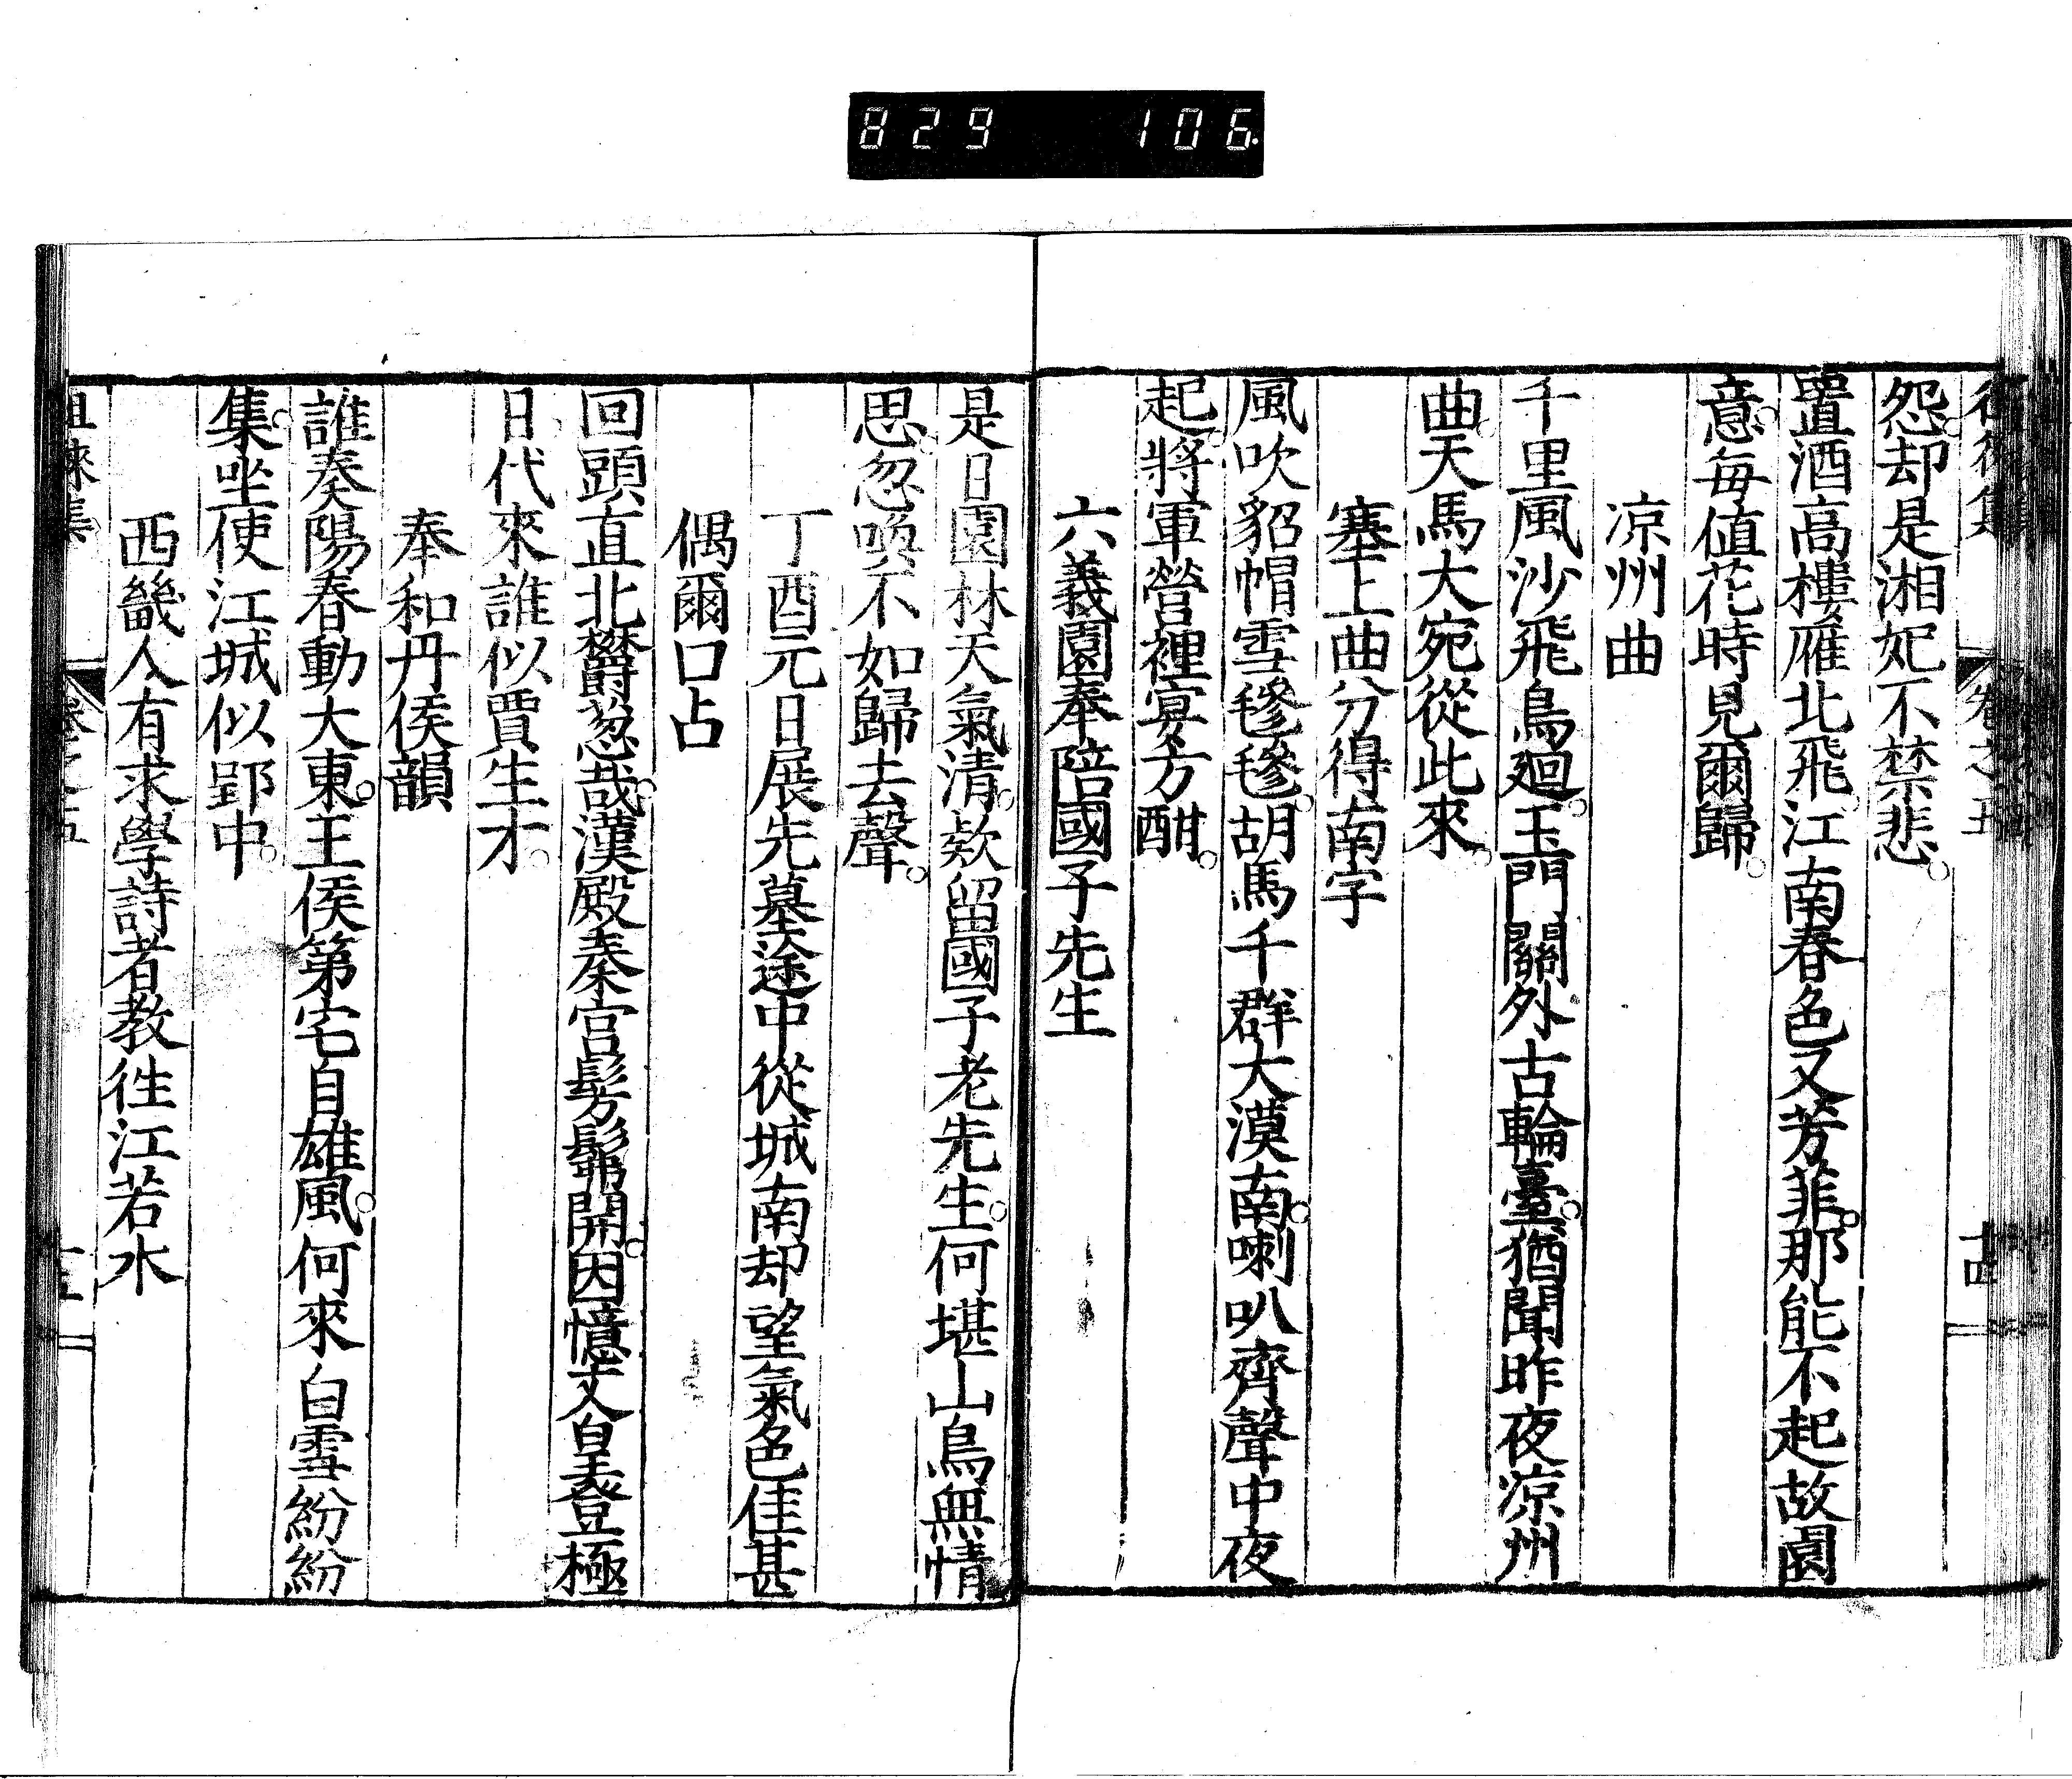 829 106.
怨却是湘妃不禁悲
置酒高樓雁北飛江南春色又芳菲那能不起故園
意每值花時見爾歸
凉州曲
千里風沙飛鳥廻玉門關外古輪臺猶聞昨夜凉州
曲天馬大宛從此來
塞上曲分得南字
風吹貂帽雪毿毿胡馬千群大漠南喇叭齊聲中夜
起將軍營裡宴方酣
六義園奉陪國子先生
是日園林天氣清欵留國子老先生何堪山鳥無情
思忽喚不如歸去聲
丁酉元日展先墓途中從城南却望氣色佳甚
偶爾口占
回頭直北欝葱哉漢殿秦宫髣髴開因憶文皇登極
日代來誰似賈生才
奉和丹侯韻
誰奏陽春動大東王侯第宅自雄風何來白雪紛紛
集坐使江城似郢中
西畿人有求學詩者教徃江若水
徂徠集 卷之五